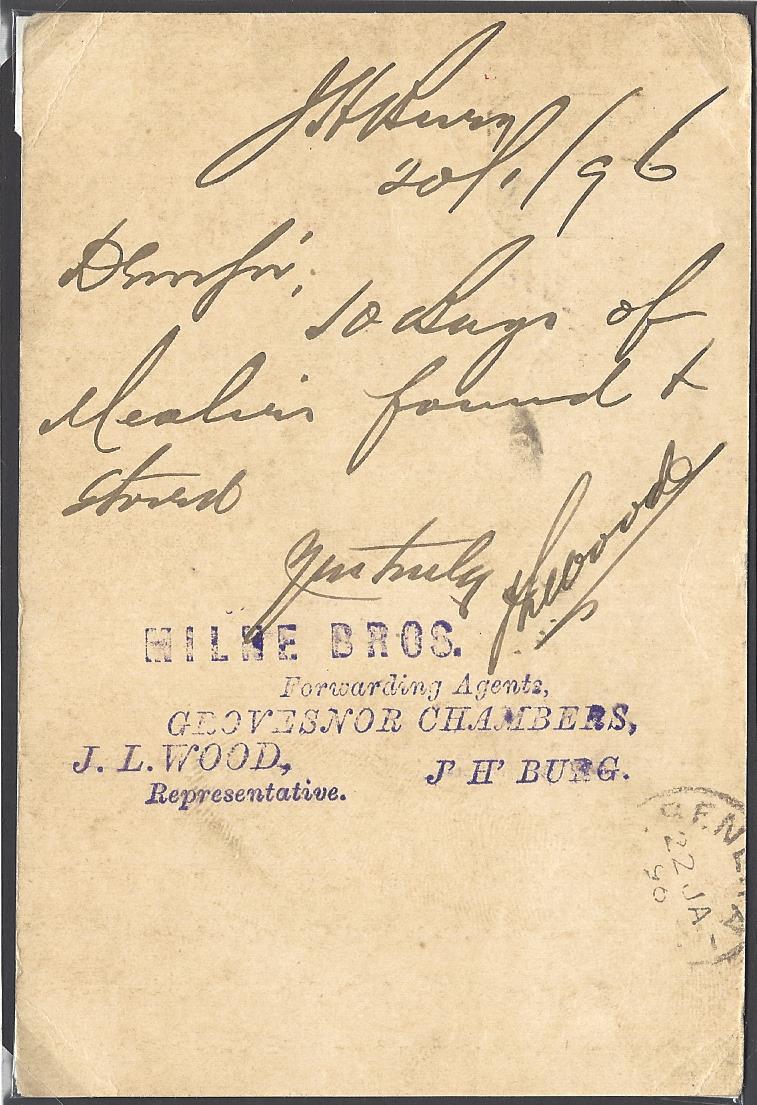 JHBurg
20/1/96
Dear Sir,
10 Bags of
Mealies found &
stored
Yours truly JLWood
MILNE BROS.
Forwarding Agents,
GROVESNOR CHAMBERS,
J. L. WOOD, J' H' BURG.
Representative.
GENERA
22 JA
96